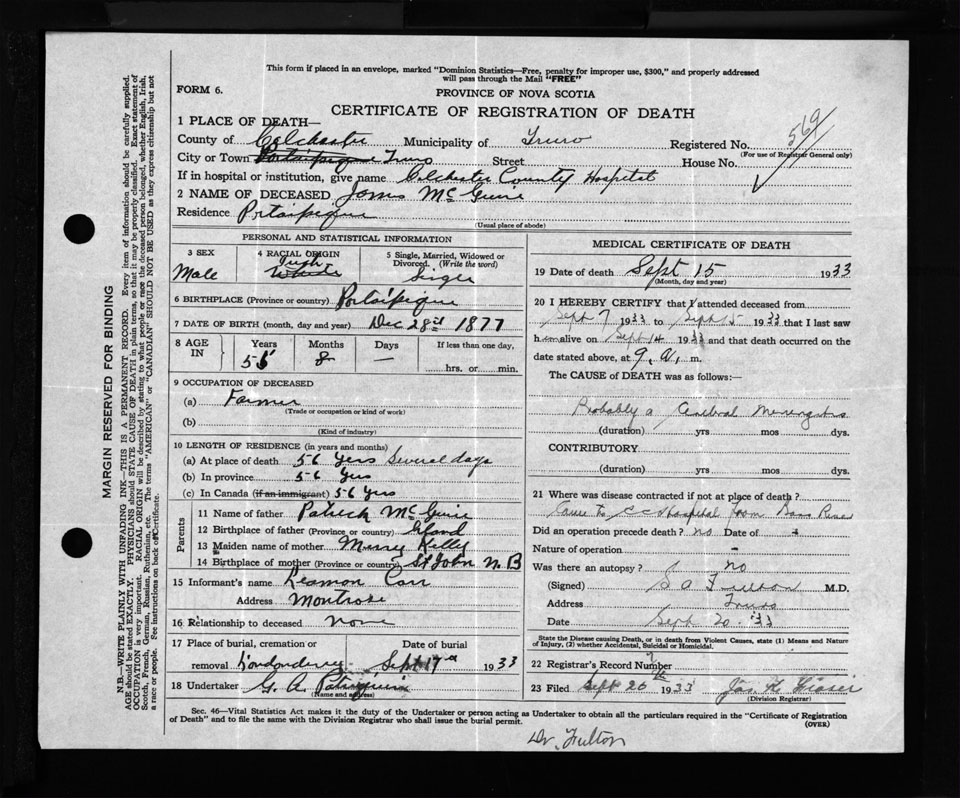 This form if placed in an envelope, marked "Dominion Statistics—Free, penalty for improper use, $300," and properly addressed
will pass through the Mail "FREE"
FORM 6.
PROVINCE OF NOVA SCOTIA
CERTIFICATE OF REGISTRATION OF DEATH
569
1 PLACE OF DEATH—
County of Colchester Municipality of Truro Registered No.
(For use of Registrar General only)
City or Town Portaipique Truro Street House No.
If in hospital or institution, give name Colchester County Hospital
2 NAME OF DECEASED James McGuire
Residence Portaipique
(Usual place of abode)
PERSONAL AND STATISTICAL INFORMATION
3 SEX
Male
4 RACIAL ORIGIN
Irish
White
5 Single, Married, Widowed or
Divorced. (Write the word)
Single
6 BIRTHPLACE (Province or country) Portaipique
7 DATE OF BIRTH (month, day and year) Dec 28 1877
8 AGE
IN
Years
55
Months
8
Days
—
If less than one day,
hrs. or min.
9 OCCUPATION OF DECEASED
(a) Farmer
(Trade or occupation or kind of work)
(b)
(Kind of industry)
10 LENGTH OF RESIDENCE (in years and months)
(a) At place of death 56 yers Several days
(b) In province 56 yrs
(c) In Canada (if an immigrant) 56 yrs
Parents
11 Name of father Patrick McGuire
12 Birthplace of father (Province or country) Irland
13 Maiden name of mother Kelly
14 Birthplace of mother (Province or country) St John N.B
15 Informant's name Carr
Address Montrose
16 Relationship to deceased none
17 Place of burial, cremation or Date of burial
removal Londonderry Sept 17 1933
18 Undertaker G. A. Patriquin
(Name and address)
MEDICAL CERTIFICATE OF DEATH
19 Date of death Sept 15 1933
(Month, day and year)
20 I HEREBY CERTIFY that I attended deceased from
Sept 7 1933 to Sept 15 1933 that I last saw
him alive on Sept 14 1933 and that death occurred on the
date stated above, at 9. a. m.
The CAUSE of DEATH was as follows:—
Probably a Cerebral Meningitis
(duration) yrs mos dys.
CONTRIBUTORY
(duration) yrs mos dys.
21 Where was disease contracted if not at place of death?
Came to C C Hospital from Bass River
Did an operation precede death? no Date of -
Nature of operation -
Was there an autopsy? no
(Signed) S A Fulton M.D.
Address Truro
Date Sept 20 - 33
State the Disease causing Death, or in death from Violent Causes, state (1) Means and Nature
of Injury, (2) whether Accidental, Suicidal or Homicidal.
22 Registrar's Record Number
23 Filed Sept 26th 1933 Jas
(Division Registrar)
Sec. 46—Vital Statistics Act makes it the duty of the Undertaker or person acting as Undertaker to obtain all the particulars required in the "Certificate of Registration
of Death" and to file the same with the Division Registrar who shall issue the burial permit.
(OVER)
Dr. Fulton
MARGIN RESERVED FOR BINDING
N.B.—WRITE PLAINLY WITH UNFADING INK—THIS IS A PERMANENT RECORD. Every item of information should be carefully supplied.
AGE should be stated EXACTLY. PHYSICIANS should STATE CAUSE OF DEATH in plain terms, so that it may be properly classified. Exact statement of
OCCUPATION is very important. RACIAL ORIGIN will be described by stating to what people or race the deceased person belonged, whether English, Irish,
Scotch, French, German, Russian, Ruthenian, etc. The terms "AMERICAN" or "CANADIAN" SHOULD NOT BE USED as they express citizenship but not
a race or people. See instructions on back of Certificate.